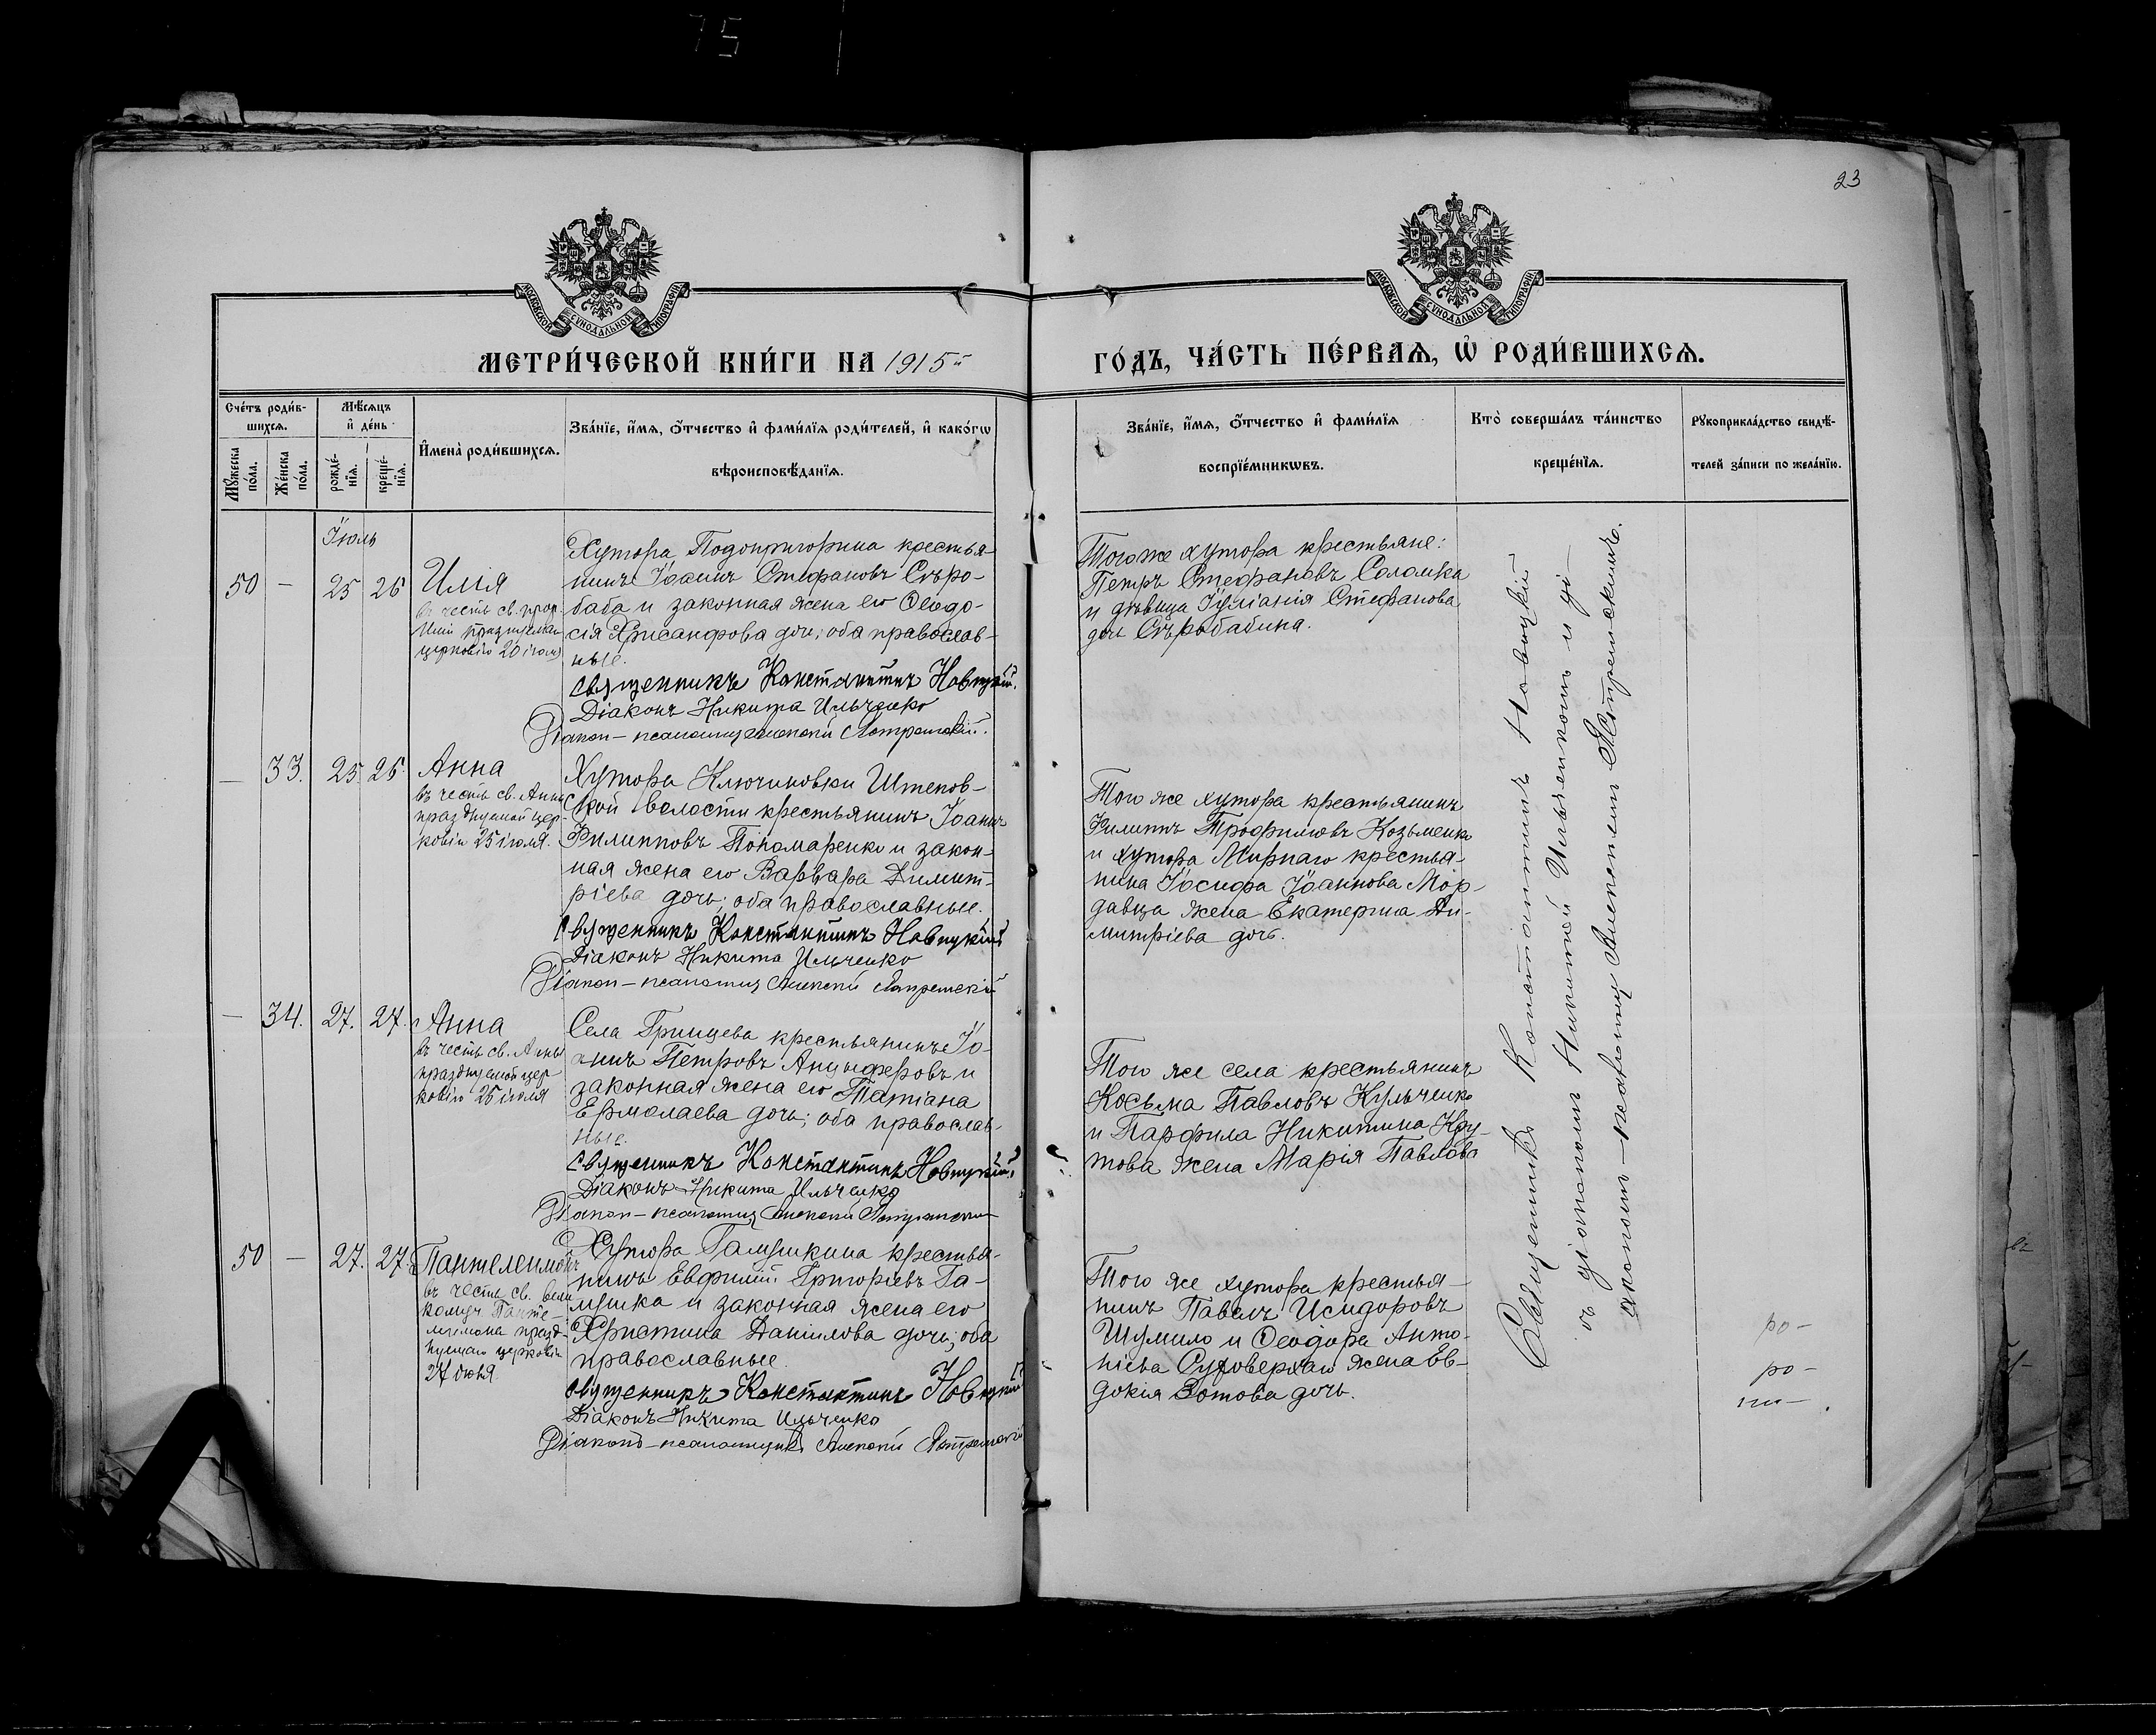 75
23
МОСКОВСКОЙ СУНОДАЛЬНОЙ ТИПОГРАФІИ
МОСКОВСКОЙ СУНОДАЛЬНОЙ ТИПОГРАФІИ
МЕТРИ́ЧЕСКОЙ КНИ́ГИ НА 1915й
ГО́ДЪ, ЧА́СТЬ ПЕ́РВАЯ, Ѡ РОДИ́ВШИХСЯ.
Сче́тъ роди́в-
шихся.
Мѣ́сяцъ
и де́нь
Му́жеска
по́ла.
Же́нска
по́ла.
рожде́-
нїя.
креще́-
нїя.
Имена̀ роди́вшихся.
Зва́нїе, и́мя, о́тчество и фами́лїя роди́телей, и како́гѡ
вѣроисповѣ́данїя.
Зва́нїе, и́мя, о́тчество и фами́лїя
воспрїе́мникѡвъ.
Кто̀ соверша́лъ та́инство
креще́нїя.
Рукоприкла́дство свидѣ́-
телей за́писи по жела́нїю.
Іюль
50 — 25 26
Илія
въ честь св. прор.
Иліи празднуемаго
церковію 20 іюля
Хутора Подопригорина крестья-
нинъ Іоаннъ Стефановъ Сѣро-
баба и законная жена его Ѳеодо-
сія Хрисанфова дочь; оба православ-
ные.
Священникъ Константинъ Новицкій.
Діаконъ Никита Ильченко
Діакон-псаломщ Алексѣй
Тогоже хутора крестьяне:
Петръ Стефановъ Соломка
и дѣвица Іуліанія Стефанова
дочь Сѣробабина.
— 33. 25. 26.
Анна
въ честь св. Анны
празднуемой цер-
ковію 25 іюля.
Хутора Ключиновки Штепов-
ской волости крестьянинъ Іоаннъ
Филипповъ Пономаренко и закон-
ная жена его Варвара Димит-
ріева дочь; оба православные.
Священникъ Константинъ Новицкій
Діаконъ Никита Ильченко
Діакон-псаломщ Алексѣй
Того же хутора крестьянинъ
Филиппъ Трофимовъ Козьменко
и хутора Мирнаго крестья-
нина Іосифа Іоаннова Мор-
давца жена Екатерина Ди-
митріева дочь.
— 34. 27. 27.
Анна
въ честь св. Анны
празднуемой цер-
ковію 25 іюля
Села Гринцева крестьянинъ Іо-
аннъ Петровъ Анцыферовъ и
законная жена его Татіана
Ермолаева дочь; оба православ-
ные.
Священникъ Константинъ Новицкій.
Діаконъ Никита Ильченко
Діакон-псаломщ Алексѣй
Того же села крестьянинъ
Косьма Павловъ Кульченко
и Парфила Никитина Кру-
това жена Марія Павлова
50 — 27. 27.
Пантелеимонъ
въ честь св. вели
комуч Панте-
леимона празд-
нуемаго церковію
27 іюля
Хутора Галушкина крестья-
нинъ Евфимій Григоріевъ Га-
лушка и законная жена его
Христина Даніилова дочь; оба
православные.
Священникъ Константинъ Новицкій
Діаконъ Никита Ильченко
Діаконъ-псаломщикъ Алексѣй
Того же хутора крестья-
нинъ Павелъ Исидоровъ
Шумило и Ѳеодора Анто-
ніева Суховерхаго жена Ев-
докія Зотова дочь.
Священникъ Константинъ Новицкій
съ діакономъ Никитой Ильченкомъ и ді-
акономъ-псаломщ Алексѣемъ
ро-
ро-